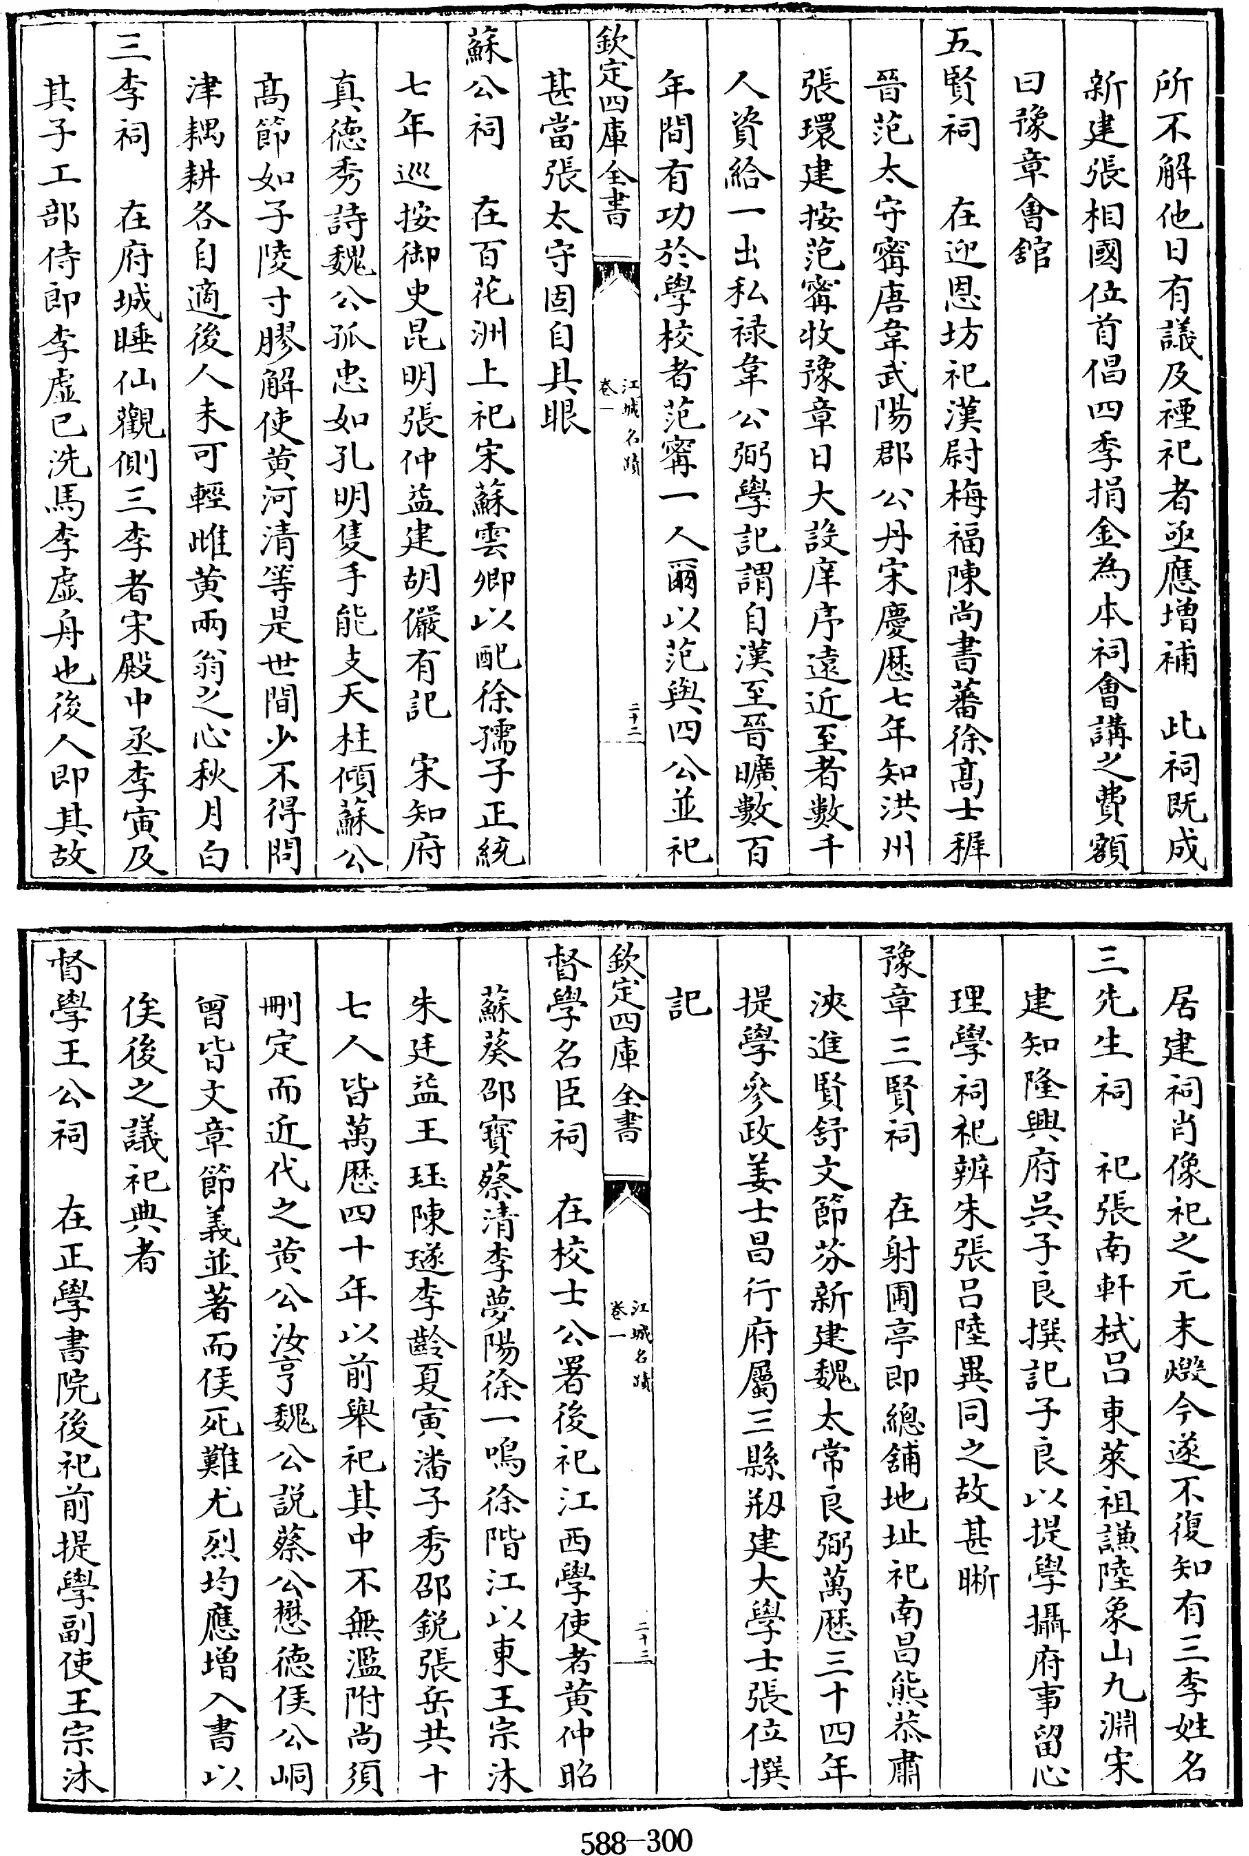 所不解他日有議及禋祀者亟應增補　此祠既成
新建張相國位首倡四季捐金為本祠會講之費額
曰豫章會館
五賢祠　在迎恩坊祀漢尉梅福陳尚書蕃徐高士穉
晉范太守甯唐韋武陽郡公丹宋慶歷七年知洪州
張環建按范甯收豫章日大設庠序遠近至者數千
人資給一出私祿韋公弼學記謂自漢至晉曠數百
年間有功於學校者范甯一人爾以范與四公並祀
欽定四庫全書
江城名蹟
卷一
二十二
甚當張太守固自具眼
蘇公祠　在百花洲上祀宋蘇雲卿以配徐孺子正統
七年巡按御史昆明張仲益建胡儼有記　宋知府
真德秀詩魏公孤忠如孔明隻手能支天柱傾蘇公
高節如子陵寸膠解使黃河清等是世間少不得問
津耦耕各自適後人未可輕雌黃兩翁之心秋月白
三李祠　在府城睡仙觀側三李者宋殿中丞李寅及
其子工部侍郎李虛已洗馬李虛舟也後人即其故
居建祠肖像祀之元末燬今遂不復知有三李姓名
三先生祠　祀張南軒栻呂東萊祖謙陸象山九淵宋
建知隆興府吳子良撰記子良以提學攝府事留心
理學祠祀辨朱張呂陸異同之故甚晰
豫章三賢祠　在射圃亭即總舖地址祀南昌熊恭肅
浹進賢舒文節芬新建魏太常良弼萬歷三十四年
提學參政姜士昌行府屬三縣剏建大學士張位撰
記
欽定四庫全書
江城名蹟
卷一
二十三
督學名臣祠　在校士公署後祀江西學使者黃仲昭
蘇葵邵寶蔡清李夢陽徐一鳴徐階江以東王宗沐
朱廷益王珏陳璲李齡夏寅潘子秀邵銳張岳共十
七人皆萬歷四十年以前舉祀其中不無濫附尚須
刪定而近代之黃公汝亨魏公說蔡公懋德侯公峒
曾皆文章節義並著而侯死難尤烈均應增入書以
俟後之議祀典者
督學王公祠　在正學書院後祀前提學副使王宗沐
588-300